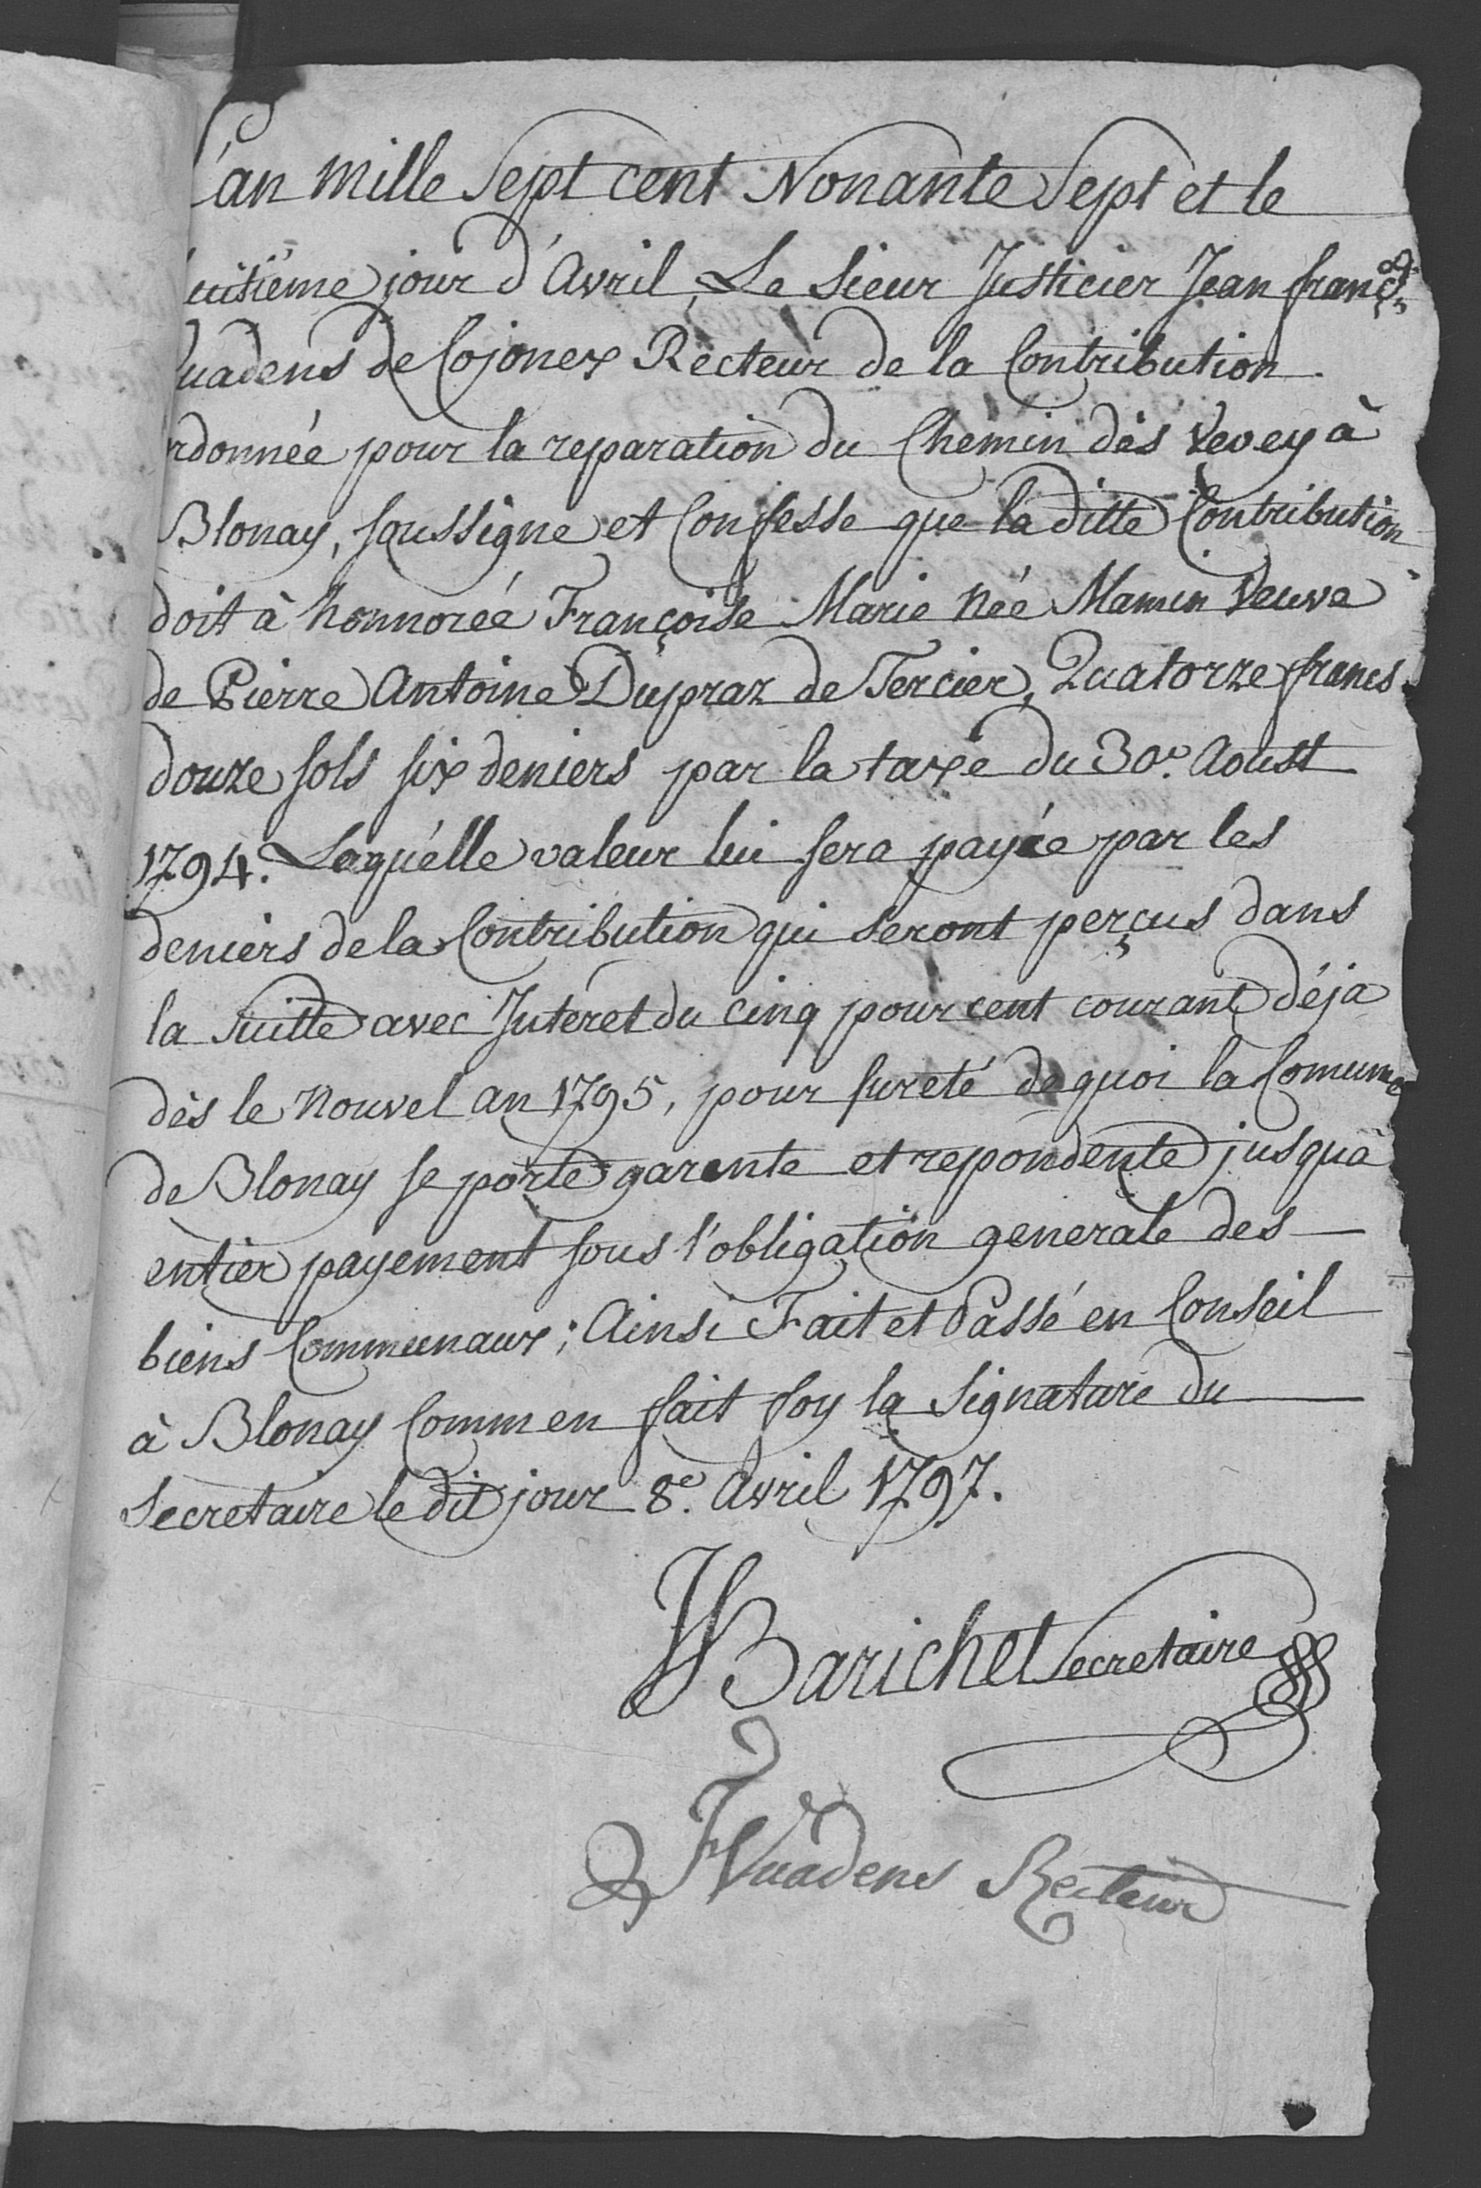 L'an mille Sept cent Nonante Sept et le
huitième jour d'Avril, Le Sieur Justicier Jean franç.s
Vuadens de Cojonex Recteur de la Contribution
ordonnée pour la reparation du Chemin dès Vevey à
Blonay, soussigne et Confesse que la ditte Contribution
doit à honnorée Françoise Marie Née Mamin Veuve
de Pierre Antoine Dupraz de Tercier, Quatorze francs
douze sols six deniers par la taxe du 30.e Aoust
1794. Laquélle valeur lui sera payée par les
deniers de la Contribution qui seront perçus dans
la Suitte avec Intéret du cinq pour cent courant déja
dès le Nouvel an 1795, pour sureté de quoi la Comune
de Blonay se porte garente et repondente jusqua
entier payement sous l'obligation generale des
biens Communaux; Ainsi Fait et Passé en Conseil
à Blonay Comm en fait foy la Signature du
Secretaire le dit jour 8.e Avril 1797.
JJBarichet Secretaire
JFVuadens Recteur